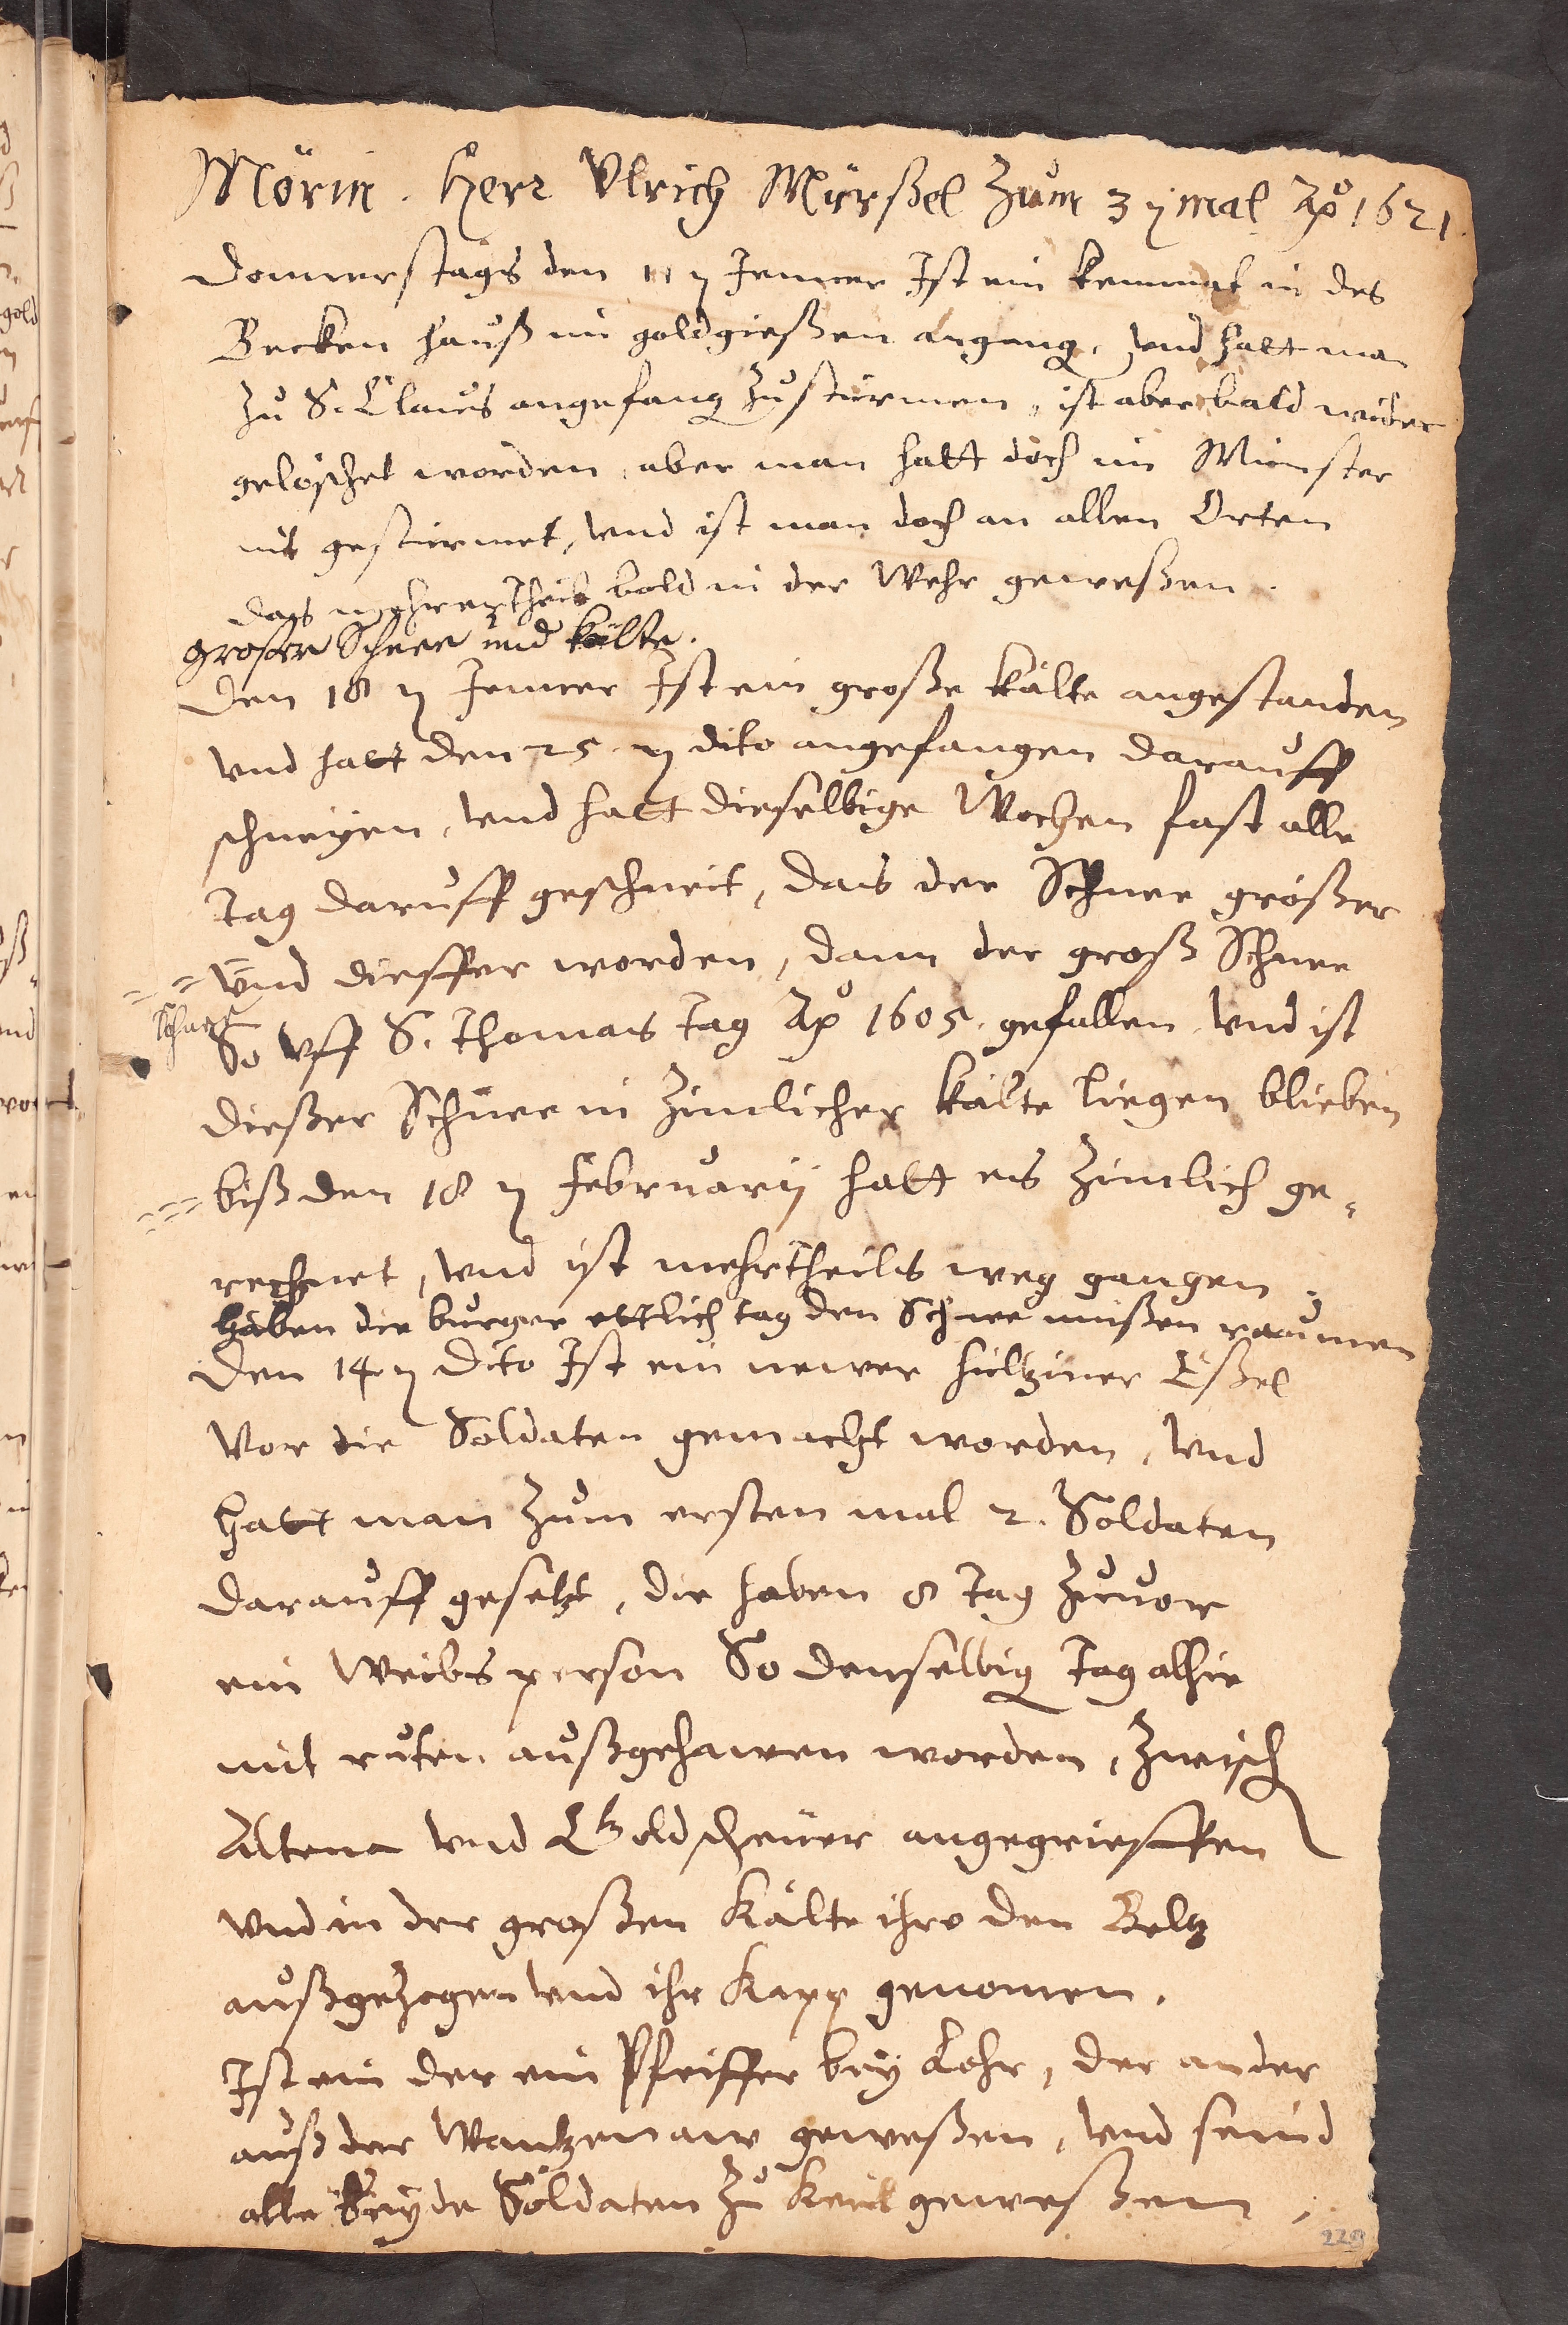 Mörin. Herr Vlrich Mürßel zum 3ten mal Ao 1621.
Donnerstags den 11ten Jenner Ist ein kemmat in des
Becken hauß im goldgießen angang, vnd hatt man
zu S. Claus angefang zu stürmen, ist aber bald wider
gelöschet worden, aber man hatt doch im Münster
nit gestürmet, vnd ist man doch an allen Orten
das mehrertheil bald in der Wehr geweßen.
großer Schnee und kälte.
Den 18ten Jenner Ist ein große kälte angestanden
vnd hatt den 25ten dito angefangen darauff
schneyen, vnd hatt dieselbige Wochen fast alle
Tag daruff geschneit, das der Schnee größer
vnd dieffer worden, dann der groß Schnee
schnee
So vff S. Thomas Tag Ao 1605. gefallen vnd ist
dießer Schnee in zimlicher kälte liegen blieben
biß den 18ten Februarij hatt es zimlich ge=
rechnet, vnd ist mehrtheils weg gangen.
haben die burger ettlich tag den Schnee müßen raumen
Den 14ten Dito Ist ein newer hültziner Eßel
Vor die Soldaten gemacht worden, vnd
hatt man zum ersten mal 2. Soldaten
darauff gesetzt, die haben 8 Tag zuuor
ein Weibs person So denselbig Tag alhie
mit ruten außgehawen worden, zwisch
Altena vnd Goldscheüer angegrieffen
vnd in der großen Kälte ihro den Beltz
außgezogen vnd ihr Kapp genomen.
Ist ein der ein Pfeiffer bey Lohr, der ander
auß der Wantzenaw geweßen, vnd seind
alle beyde Soldaten zu Keil geweßen,
229